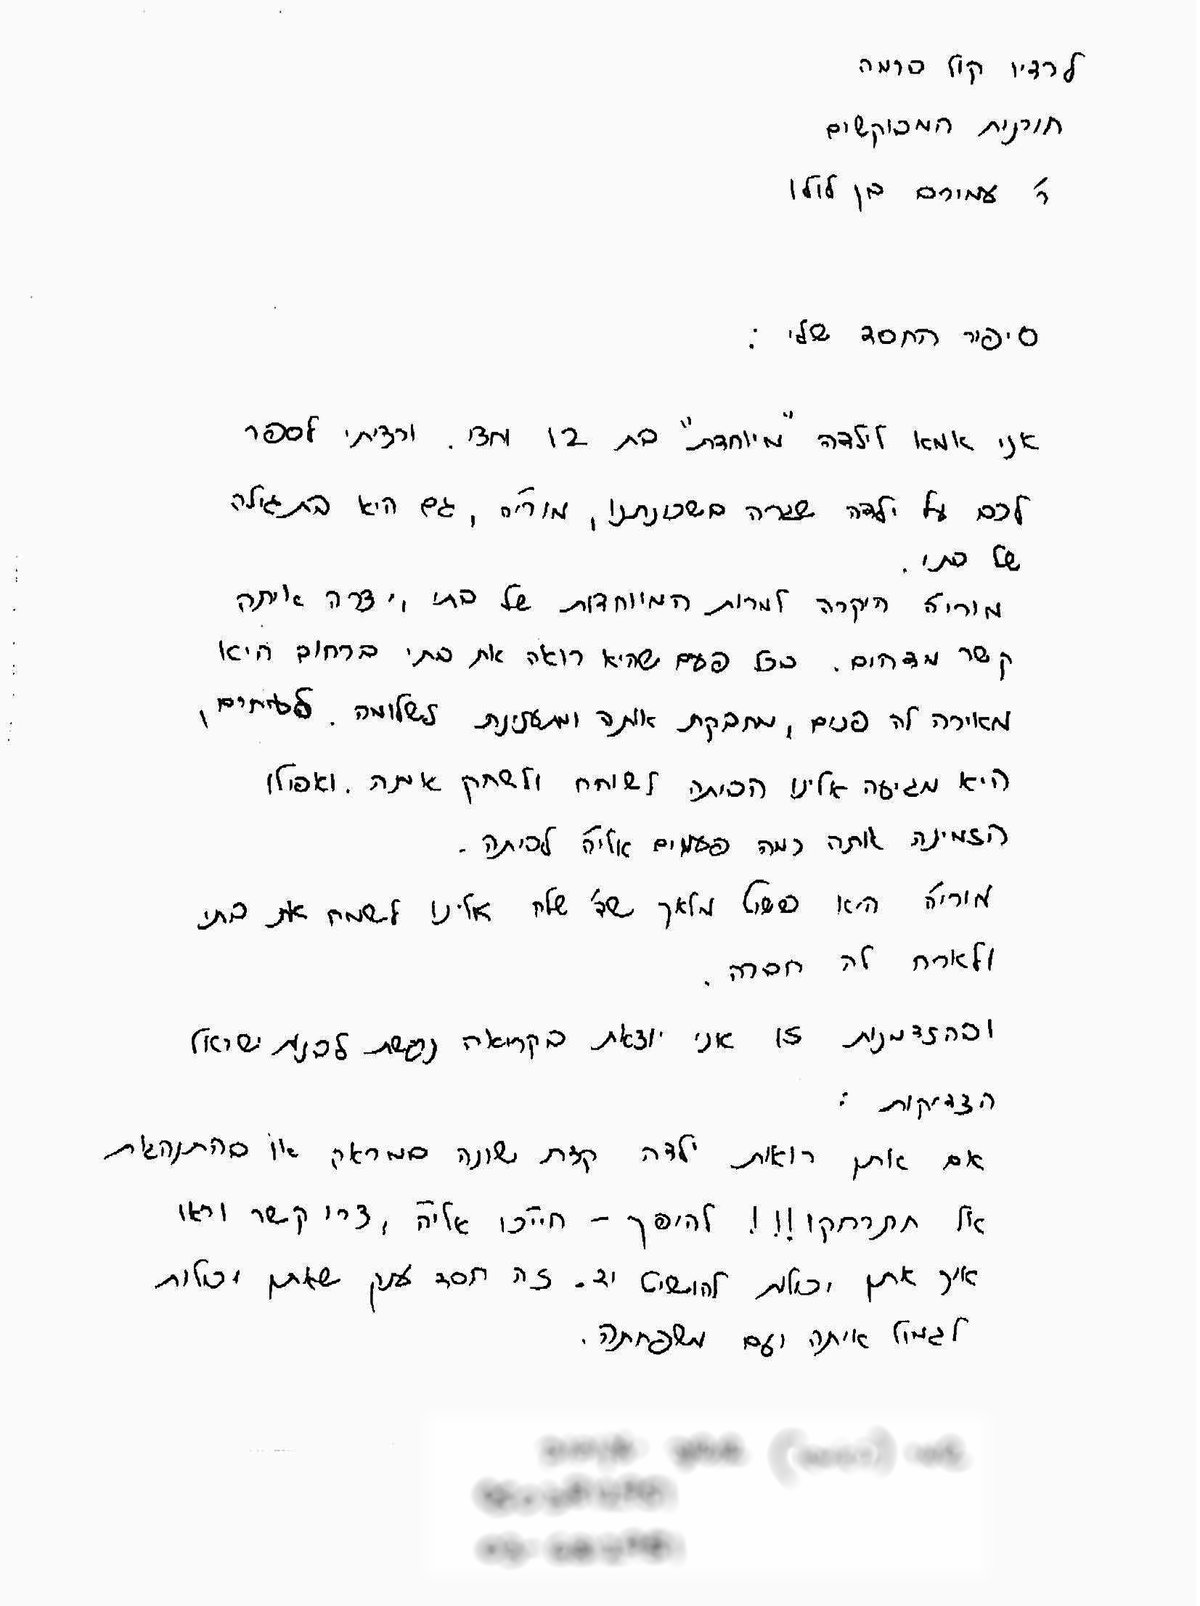 לרדיו קול ברמה
תוכנית המבוקשים
ר' עמירם בן לולו
סיפור החסד שלי :
אני אמא לילדה "מיוחדת" בת 12 וחצי. ורציתי לספר
לכם על ילדה שגרה בשכונתנו, מוריה, גם היא בת גילה
של בתי.
מוריה היקרה למרות המיוחדות של בתי, יצרה איתה
קשר מדהים. בכל פעם שהיא רואה את בתי ברחוב היא
מאירה לה פנים, מחבקת אותה ומתענינת לשלומה.
היא מגיעה אלינו הביתה לשוחח ולשחק אתה. ואפילו
הזמינה אותה כמה פעמים אליה לביתה.
מוריה היא פשוט מלאך שה' שלח אלינו לשמח את בתי
ולארח לה חברה.
ובהזדמנות זו אני יוצאת בקריאה נרגשת לבנות ישראל
הצדיקות :
אם אתן רואות ילדה קצת שונה במראה או בהתנהגות
אל תתרחקו!!! להיפך - חייכו אליה, צרו קשר וראו
איך אתן יכולות להושיט יד. זה חסד ענק שאתן יכולות
לגמול איתה ועם משפחתה.